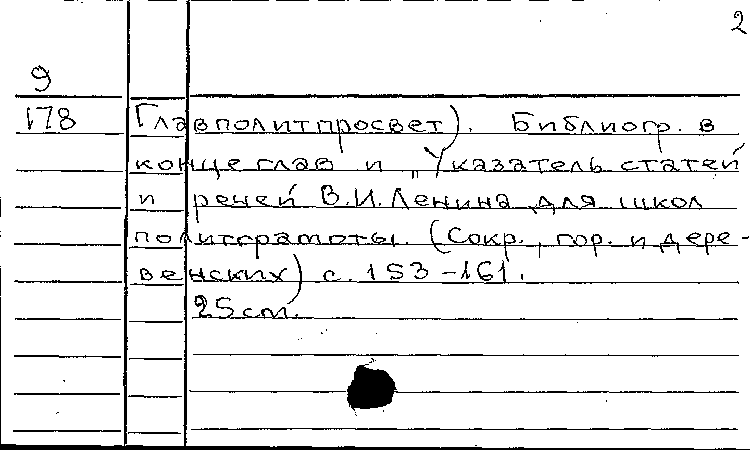 2
9
178 Главполитпросвет). Библиогр. в
конце глав и „Указатель статей
и речей В.И. Ленина для школ
политграмоты. (Сокр., гор. и дере-
венских) с. 153-161.
25 cm.